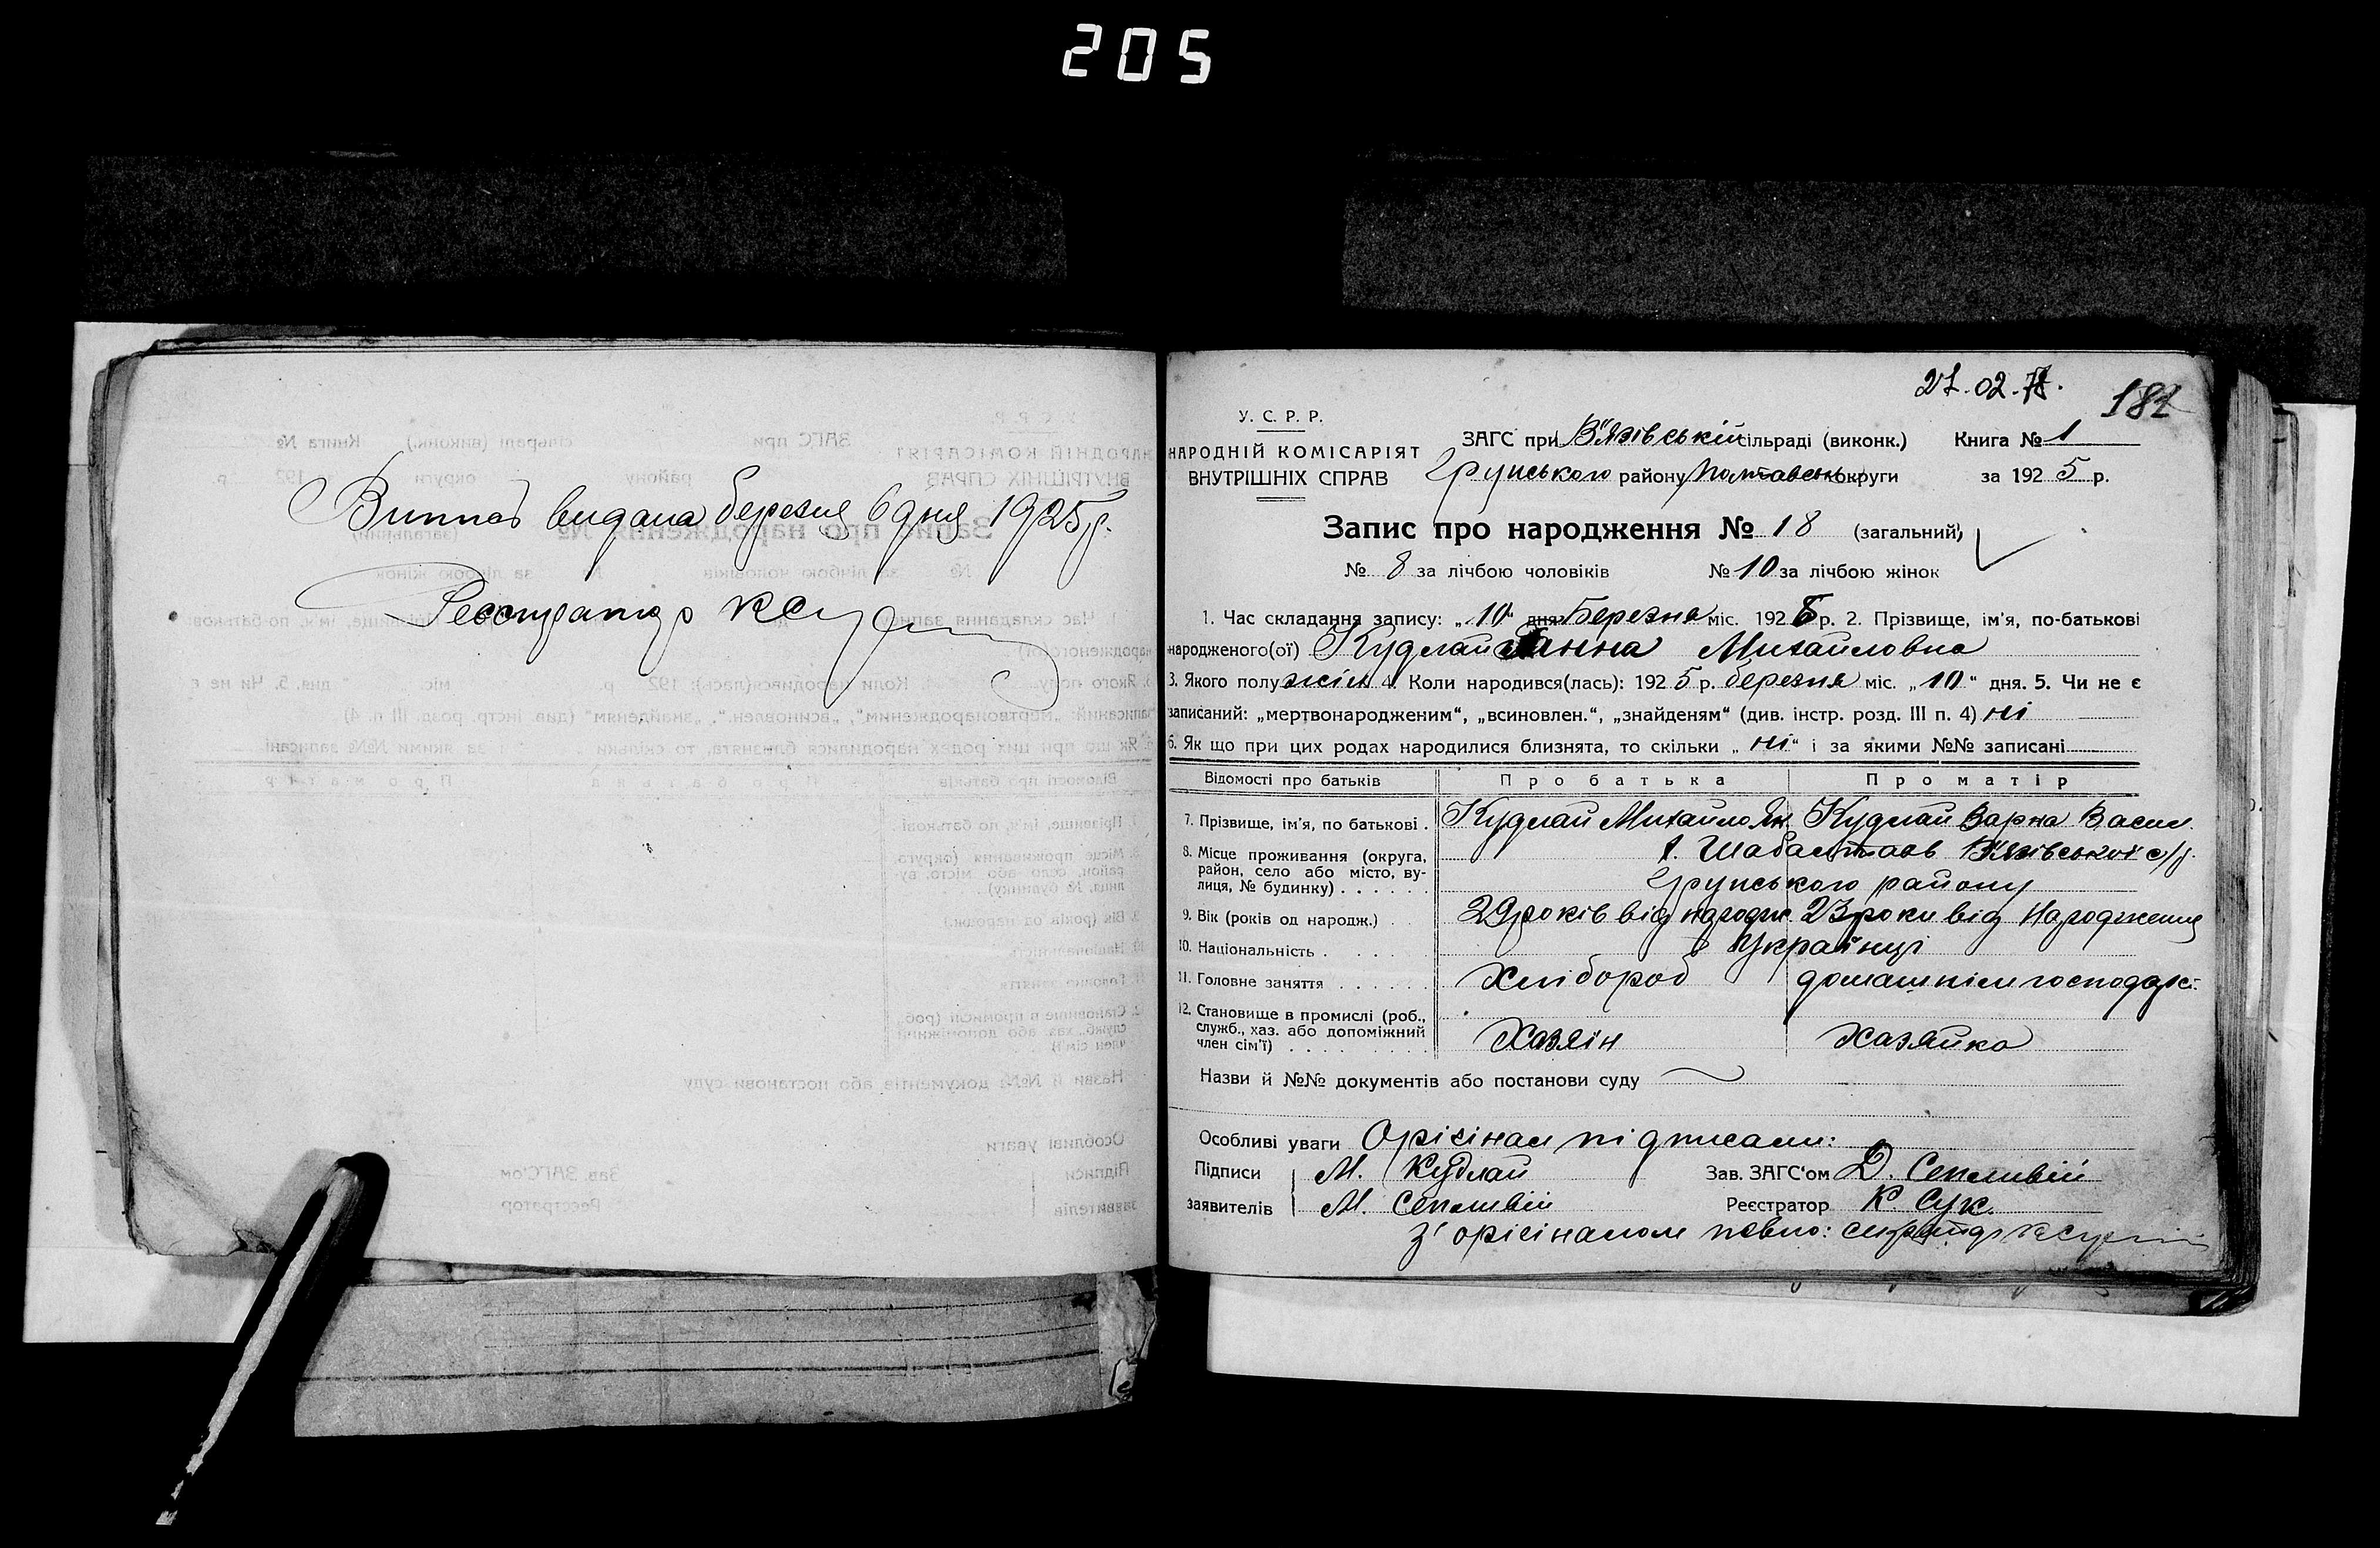 205
Виппсь видана березня 6 дня 1925 р.
Реєстратор КСук
27.02.78. 182
У. С. Р. Р.
НАРОДНІЙ КОМІСАРІЯТ
ВНУТРІШНІХ СПРАВ
ЗАГС при В'язівській сільраді (виконк.) Книга № 1
Грунського району Полтавськ округи за 192 5 р.
Запис про народження № 18 (загальний)
№ 8 за лічбою чоловіків № 10 за лічбою жінок
1. Час складання запису: „10“ дня Березня міс. 192 5 р. 2. Прізвище, ім'я, по-батькові
народженого(ої) Кудлай Ганна Михайловна
3. Якого полу жін 4. Коли народився(лась): 192 5 р. березня міс. „10“ дня. 5. Чи не є
записаний: „мертвонародженим“, „всиновлен.“, „знайденям“ (див. інстр. розд. III п. 4) ні
6. Як що при цих родах народилися близнята, то скільки „ні“ і за якими №№ записані
Відомості про батьків Про батька Про матір
7. Прізвище, ім'я, по батькові . Кудлай Михайло Як. Кудлай Варка Васил.
8. Місце проживання (округа, район, село або місто, вулиця, № будинку) . . . . . . В'язівської с/р.
Грунського району
9. Вік (років од народж.) . . 29 років від народж. 23 роки від народження
10. Національність . . . . . . Українці
11. Головне заняття . . . . . . Хлібороб домашнім господарс.
12. Становище в промислі (роб., служб., хаз. або допоміжний член сім'ї) . . . . . . . . Хазяїн Хазяйка
Назви й №№ документів або постанови суду
Особливі уваги Оріґінал підписали:
Підписи М. Кудлай Зав. ЗАГС'ом Д. Сепливій
заявителів М. Сепливій Реєстратор К. Сук.
З' оріґіналом